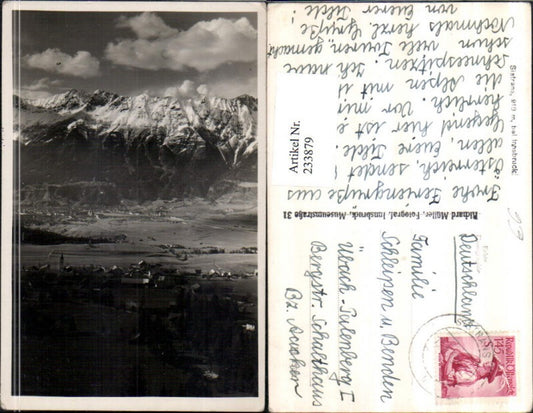 Sistrans, 919 m, bei Innsbruck
Frohe Feriengrüße aus
Österreich, sendet
allen Eure Tilde!
Gegend hier ist e
herrlich. Vor mir
die Alpen mit d
Schneespitzen. Ich
schon viele Touren, gemacht
Nochmals herzl. Grüße
von Eurer Tilde!
Artikel Nr.
233879
Richard Müller, Fotograf, Innsbruck, Museumstraße 31
Deutschland
Familie
Scheipen u. Benden
Übach-
Bergstr. Schulthaus
Bz. Aachen